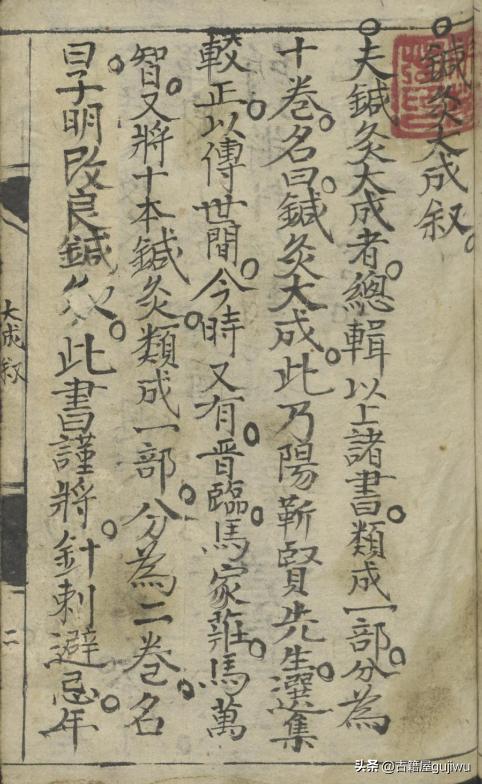 鍼灸大成叙。
夫鍼灸大成者。總輯以上諸書。類成一部。分為
十卷。名曰鍼灸大成。此乃陽靳賢先生選集
較正。以傳世間。今時又有晋臨馬家莊馬萬
智。又將十本鍼灸。類成一部。分為二卷。名
曰子明改良鍼灸。此書謹將。針刺避忌。年
大成叙
二
头条 @古籍屋gujiwu